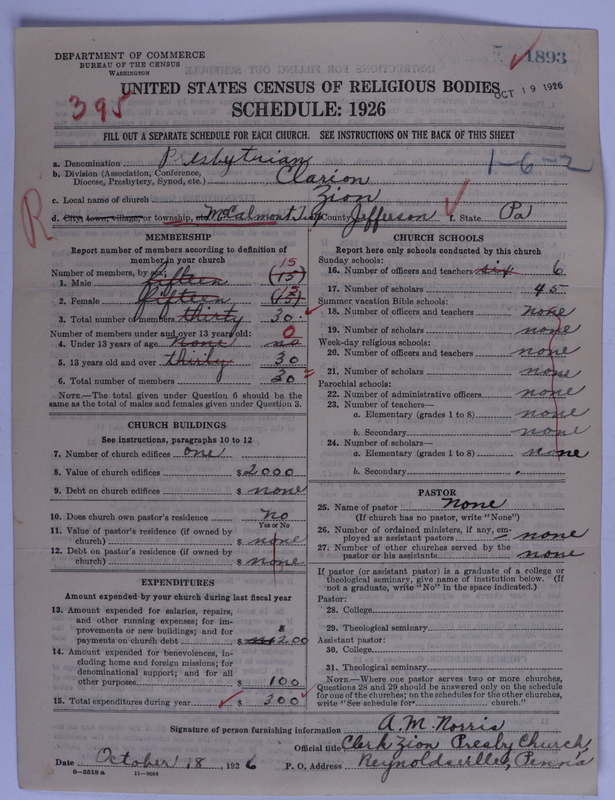 DEPARTMENT OF COMMERCE
BUREAU OF THE CENSUS
WASHINGTON
1893
UNITED STATES CENSUS OF RELIGIOUS BODIES
OCT 19 1926
395
SCHEDULE: 1926
FILL OUT A SEPARATE SCHEDULE FOR EACH CHURCH. SEE INSTRUCTIONS ON THE BACK OF THIS SHEET
a. Denomination Presbytrian
1-6-2
b. Division (Association, Conference, Diocese, Presbytery, Synod, etc.) Clarion
c. Local name of church Zion
R
d. City, town, village, or township, McCalmont Twp County Jefferson f. State Pa
MEMBERSHIP
Report number of members according to definition of
member in your church
Number of members, by sex: 15
1. Male fifteen (15)
2. Female fifteen (15)
3. Total number of members thirty 30
Number of members under and over 13 years old: 0
4. Under 13 years of age none no
5. 13 years old and over thirty 30
6. Total number of members 30
NOTE.—The total given under Question 6 should be the
same as the total of males and females given under Question 3.
CHURCH BUILDINGS
See instructions, paragraphs 10 to 12
7. Number of church edifices one
8. Value of church edifices $2000
9. Debt on church edifices $ none
10. Does church own pastor's residence no
Yes or No
11. Value of pastor's residence (if owned by
church) $ none
12. Debt on pastor's residence (if owned by
church) $ none
EXPENDITURES
Amount expended by your church during last fiscal year
13. Amount expended for salaries, repairs,
and other running expenses; for im-
provements or new buildings; and for
payments on church debt $ 200
14. Amount expended for benevolences, in-
cluding home and foreign missions; for
denominational support; and for all
other purposes $ 100
15. Total expenditures during year $ 300
CHURCH SCHOOLS
Report here only schools conducted by this church
Sunday schools:
16. Number of officers and teachers six 6
17. Number of scholars 45
Summer vacation Bible schools:
18. Number of officers and teachers none
19. Number of scholars none
Week-day religious schools:
20. Number of officers and teachers none
21. Number of scholars none
Parochial schools:
22. Number of administrative officers none
23. Number of teachers—
a. Elementary (grades 1 to 8) none
b. Secondary none
24. Number of scholars—
a. Elementary (grades 1 to 8) none
b. Secondary
PASTOR
25. Name of pastor none
(If church has no pastor, write "None")
26. Number of ordained ministers, if any, em-
ployed as assistant pastors none
27. Number of other churches served by the
pastor or his assistants none
If pastor (or assistant pastor) is a graduate of a college or
theological seminary, give name of institution below. (If
not a graduate, write "No" in the space indicated.)
Pastor:
28. College
29. Theological seminary
Assistant pastor:
30. College
31. Theological seminary
NOTE.—Where one pastor serves two or more churches,
Questions 28 and 29 should be answered only on the schedule
for one of the churches; on the schedules for the other churches,
write "See schedule for church."
Signature of person furnishing information A. M. Norris
Official title Clerk Zion Presby Church
Date October 18, 1926 P. O. Address Reynoldsville, Penna
8—5518 a 11—9664